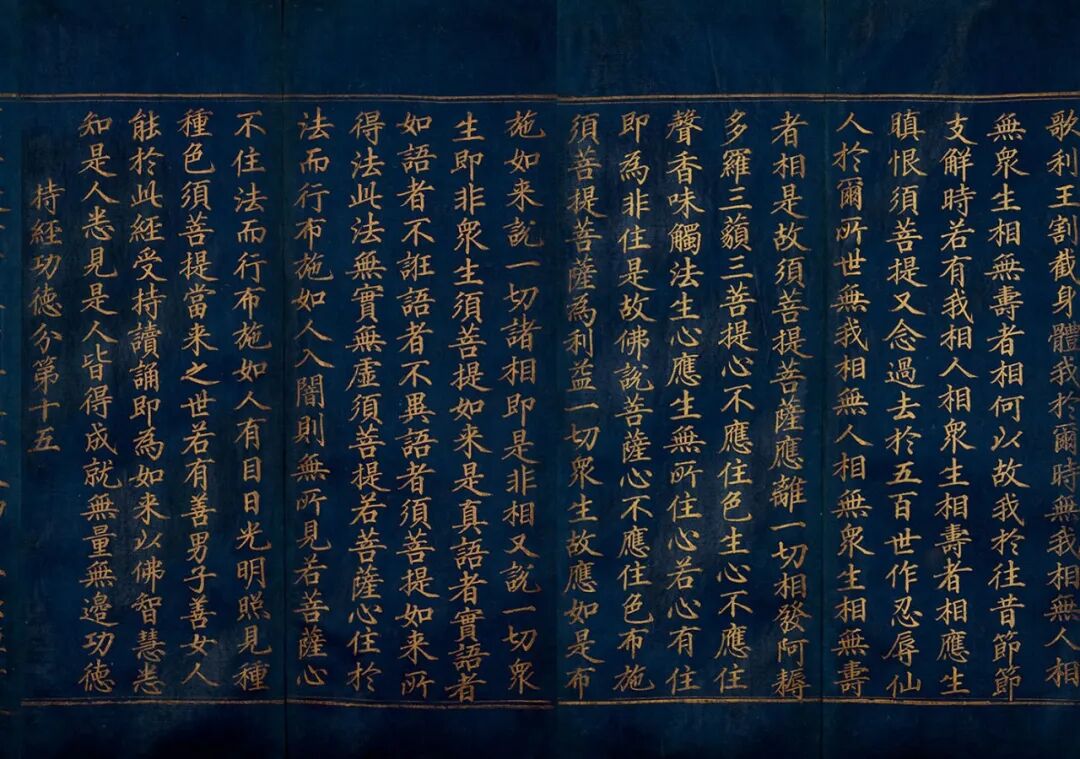 歌利王割截身體我於爾時無我相無人相
無衆生相無壽者相何以故我於往昔節節
支解時若有我相人相衆生相壽者相應生
瞋恨須菩提又念過去於五百世作忍辱仙
人於爾所世無我相無人相無衆生相無壽
者相是故須菩提菩薩應離一切相發阿耨
多羅三藐三菩提心不應住色生心不應住
聲香味觸法生心應生無所住心若心有住
即為非住是故佛說菩薩心不應住色布施
須菩提菩薩為利益一切衆生故應如是布
施如来說一切諸相即是非相又說一切衆
生即非衆生須菩提如来是真語者實語者
如語者不誑語者不異語者須菩提如来所
得法此法無實無虛須菩提若菩薩心住於
法而行布施如人入闇則無所見若菩薩心
不住法而行布施如人有目日光明照見種
種色須菩提當来之世若有善男子善女人
能於此經受持讀誦即為如来以佛智慧悉
知是人悉見是人皆得成就無量無邊功徳
持經功徳分第十五